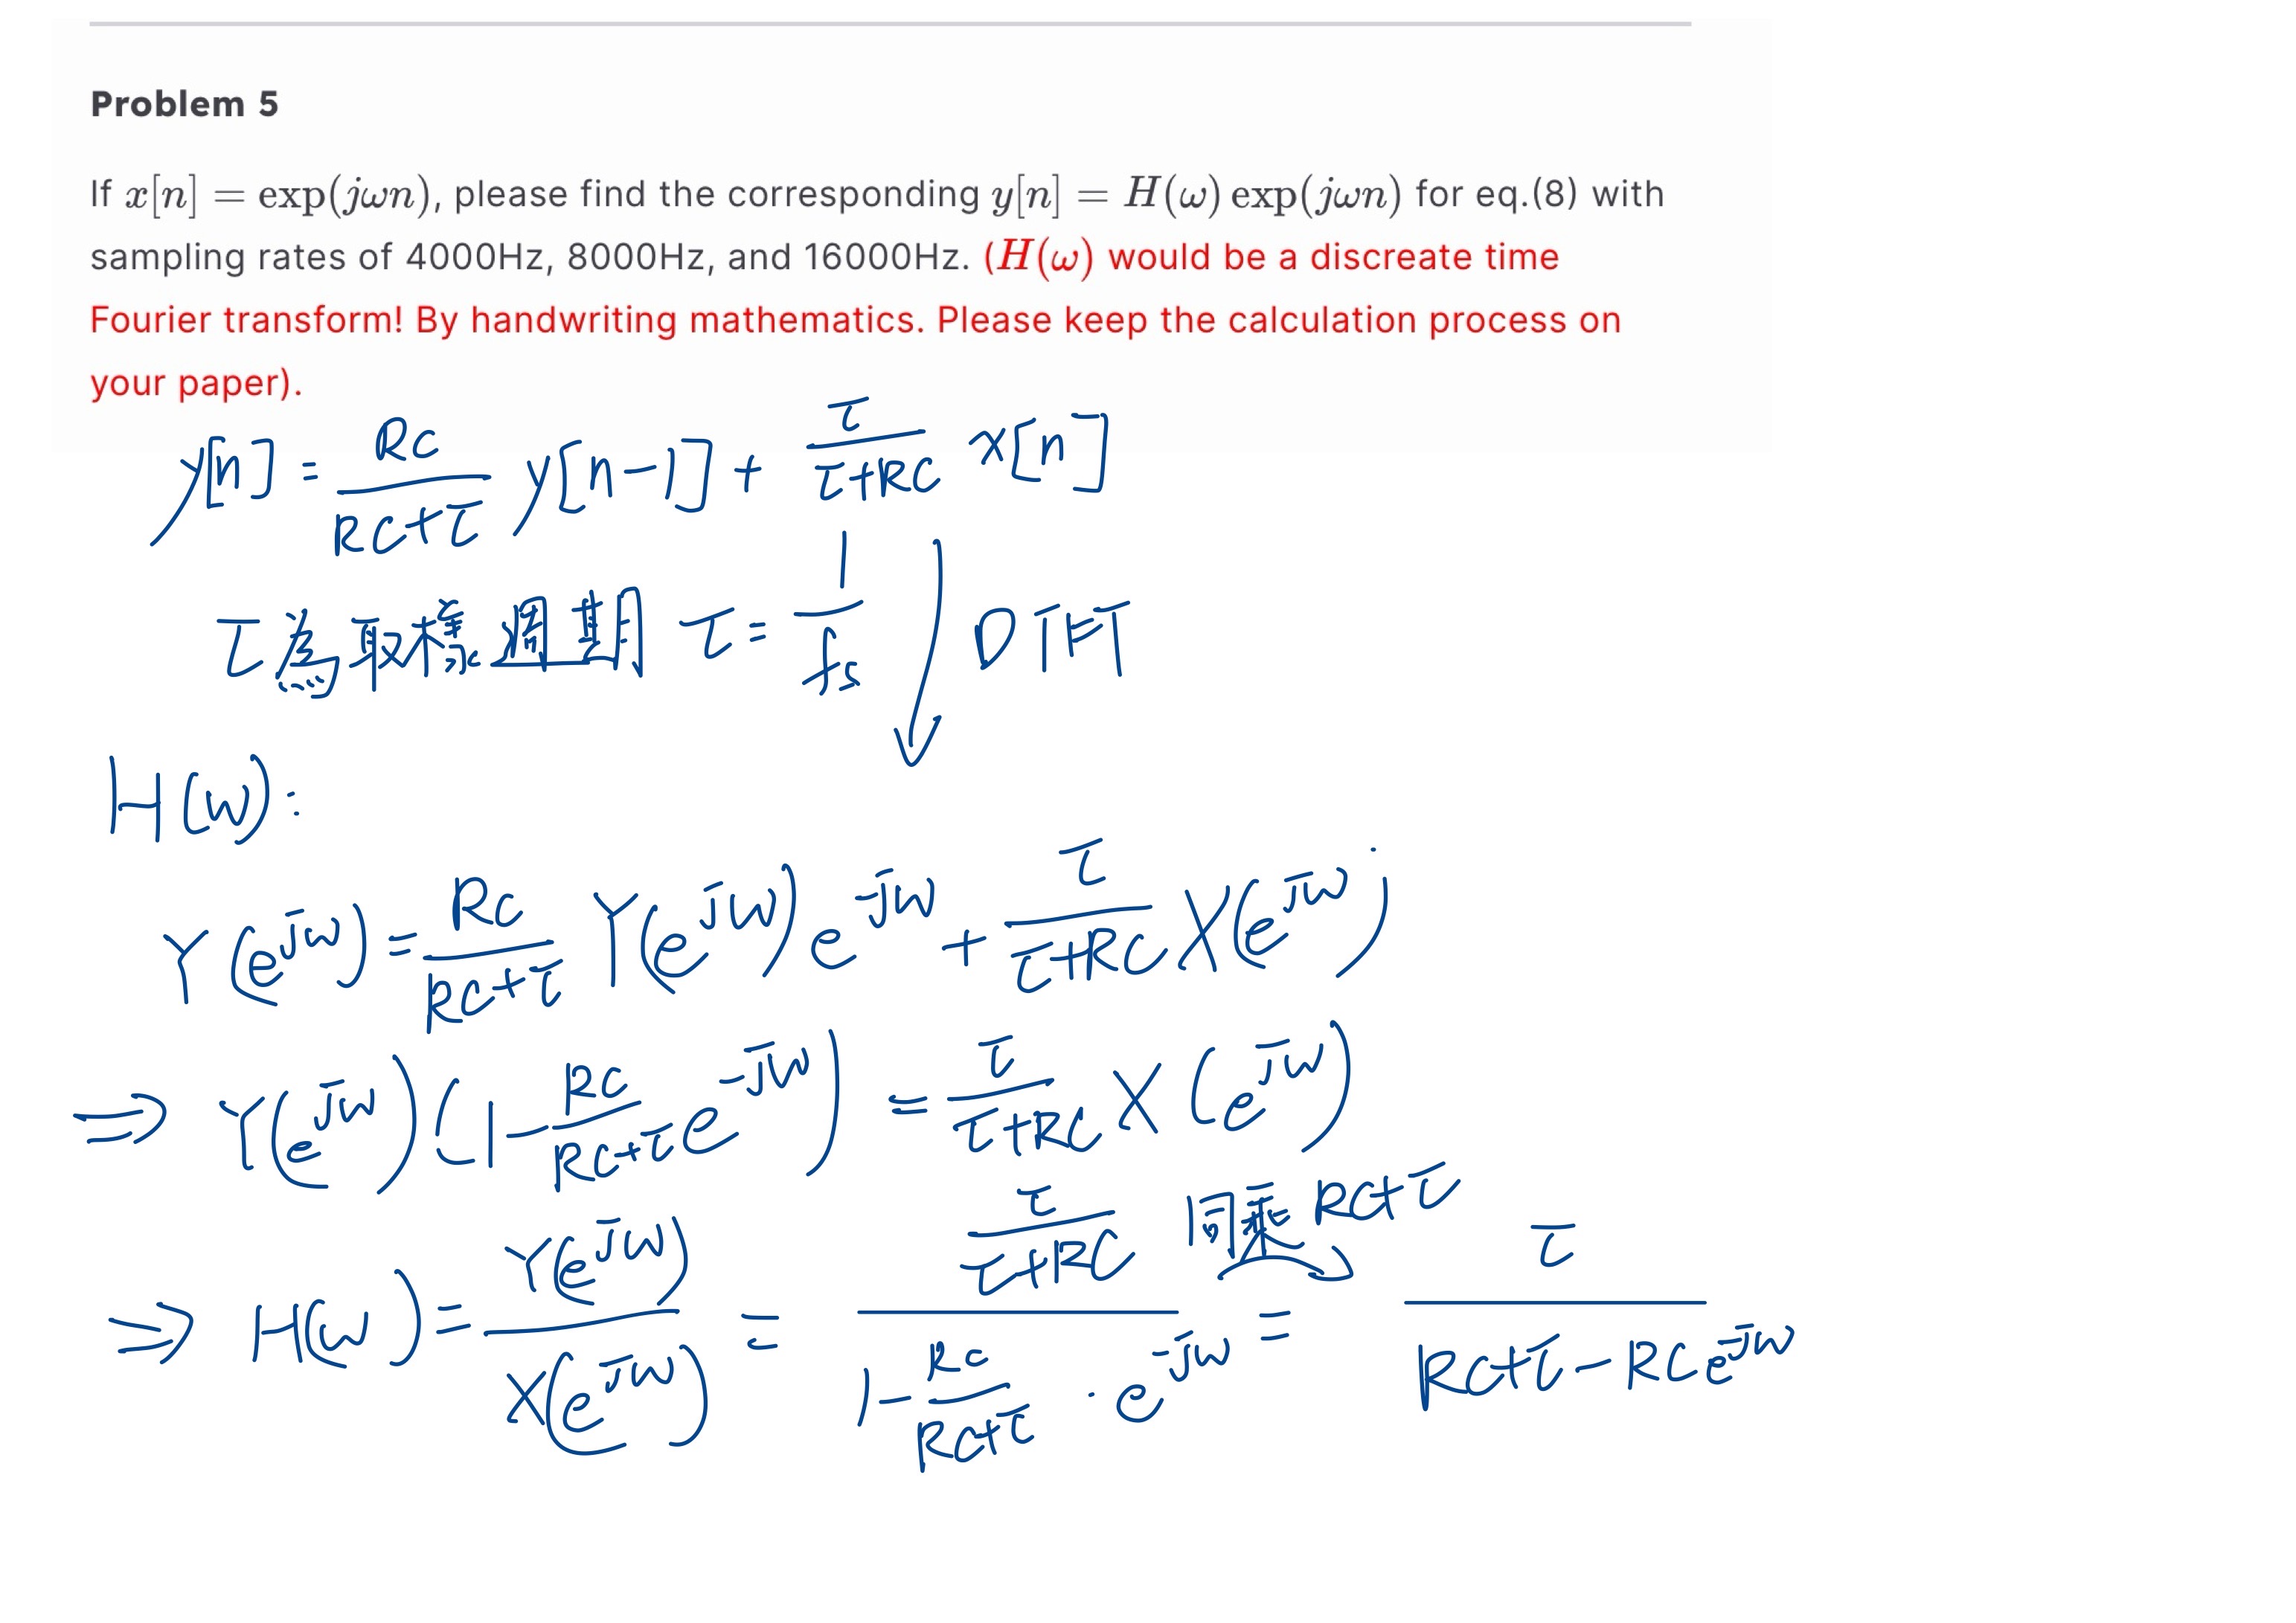 Problem 5
If x[n] = exp(jωn), please find the corresponding y[n] = H(ω) exp(jωn) for eq.(8) with
sampling rates of 4000Hz, 8000Hz, and 16000Hz. (H(ω) would be a discreate time
Fourier transform! By handwriting mathematics. Please keep the calculation process on
your paper).
y[n] = \frac{RC}{RC+τ} y[n-1] + \frac{τ}{τ+RC} x[n]
τ為取樣週期 τ = \frac{1}{fs} ↓ DTFT
H(w):
Y(e^{jw}) = \frac{RC}{RC+τ} Y(e^{jw}) e^{-jw} + \frac{τ}{τ+RC} X(e^{jw})
⇒ Y(e^{jw}) (1 - \frac{RC}{RC+τ} e^{-jw}) = \frac{τ}{τ+RC} X(e^{jw})
同乘 RC+τ
⇒ H(w) = \frac{Y(e^{jw})}{X(e^{jw})} = \frac{\frac{τ}{τ+RC}}{1 - \frac{RC}{RC+τ} · e^{-jw}} = \frac{τ}{RC+τ-RCe^{-jw}}